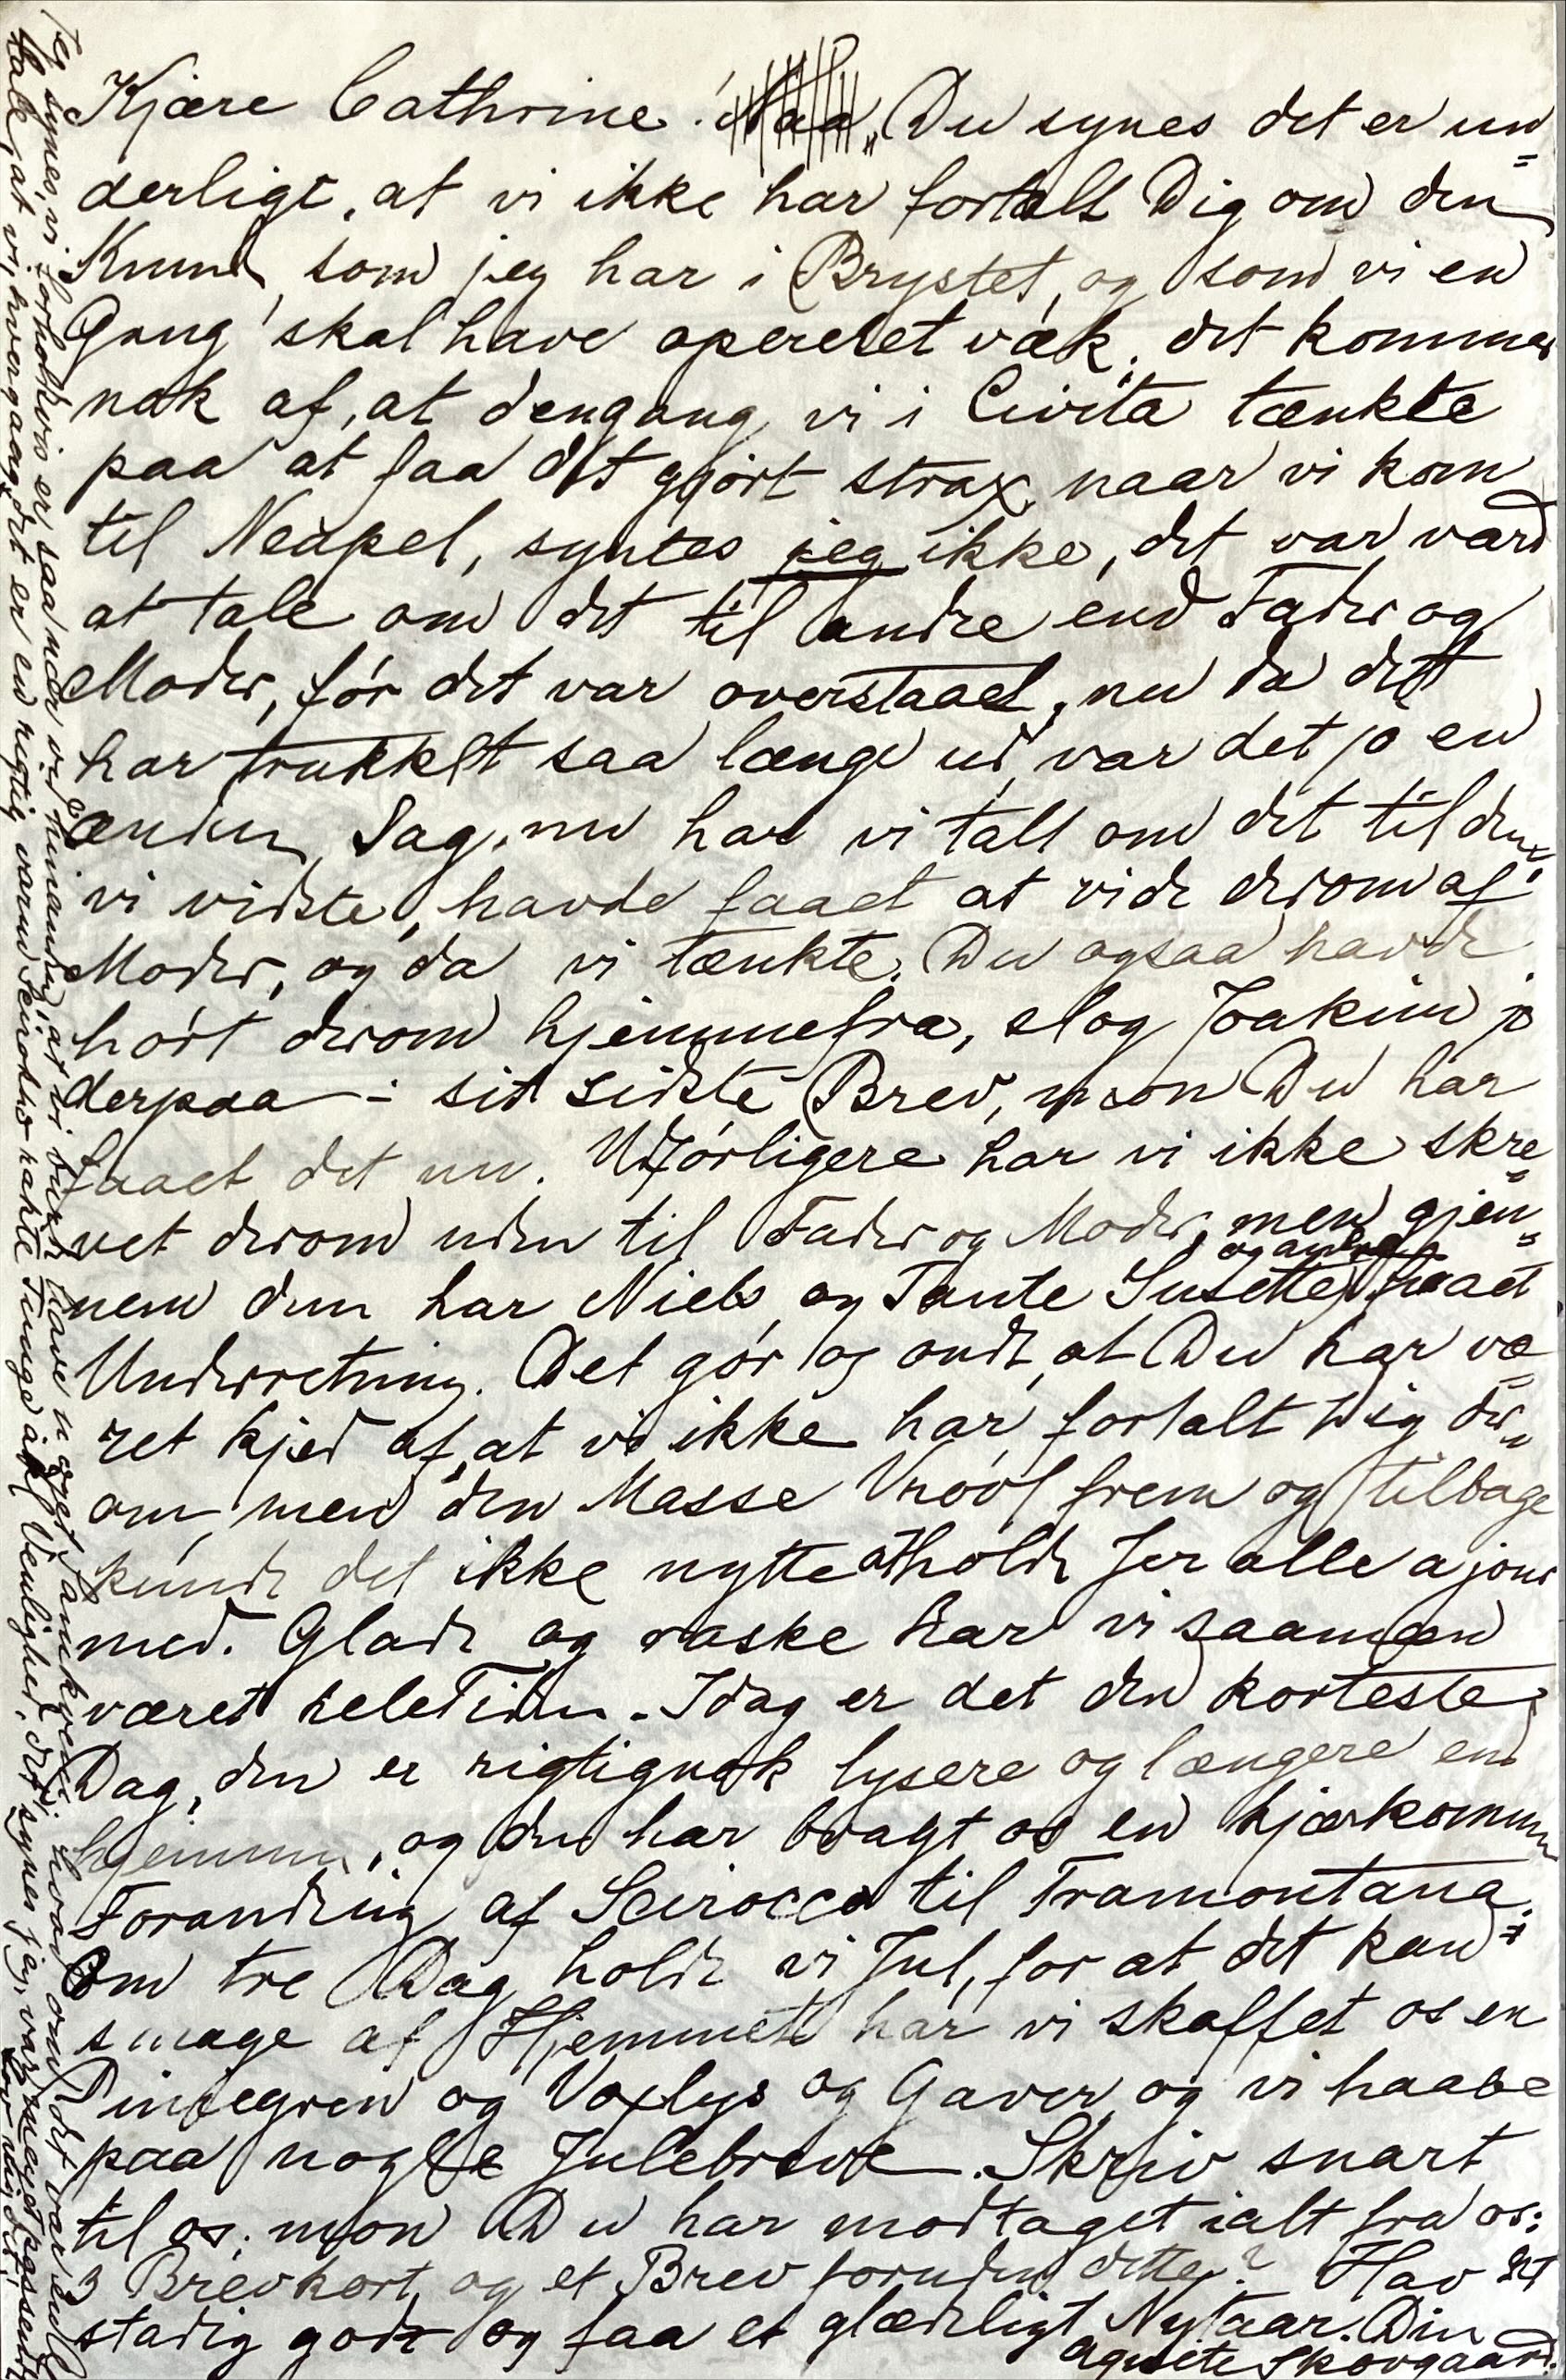 Kjære Cathrine! Du synes det er un=
derligt, at vi ikke har fortalt Dig om den
Knude, som jeg har i Brystet, og som vi en
Gang skal have opereret væk, det kommer
nok af, at dengang vi i Civita tænkte
paa at faa det gjort strax, naar vi kom
til Neapel, syntes jeg ikke, det var værd
at tale om det til andre end Fader og
Moder, før det var overstaaet, nu da det
har trukket saa længe ud, var det jo en
anden Sag, nu har vi talt om det til dem,
vi vidste, havde faaet at vide derom af
Moder, og da vi tænkte, Du ogsaa havde
hørt derom hjemmefra, slog Joakim jo
derpaa i sit sidste Brev, mon Du har
faaet det nu. Udførligere har vi ikke skre=
vet derom uden til Fader og Moder, men gjen=
nem dem har Niels og Tante Susette og andre faaet
Underretning. Det gør os ondt, at Du har væ=
ret kjed af, at vi ikke har fortalt Dig der=
om, men den Masse Vrøvl frem og tilbage
kunde det ikke nytte at holde Jer alle a jour
med. Glade og raske har vi saamæn
været hele Tiden. Idag er det den korteste
Dag, den er rigtignok lysere og længere end
hjemme, og den har bragt os en kjærkommen
Forandring af Scirocco til Tramontana.
Om tre Dag holde vi Jul, for at det kan
smage af Hjemmet har vi skaffet os en
Piniegren og Voxlys og Gaver, og vi haabe
paa nogle Julebreve. Skriv snart
til os; mon Du har modtaget ialt fra os:
3 Brevkort og et Brev foruden dette? Hav det
stadig godt og faa et glædeligt Nytaar. Din
Agnete Skovgaard.
Jeg synes, vi forholdsvis er saa nær ved hinanden, at vi burde have noget Samkvem; hvad om det var
tale, at vi, hver gang det er en rigtig varm Scirocko rakte Tunge ad Venlighed, det synes jeg, var meget passende